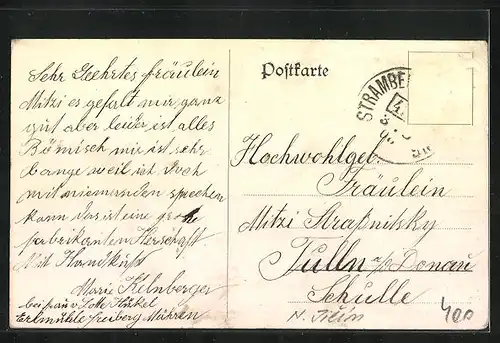 Sehr Geehrtes fräulein
Mitzi es gefalt mir ganz
gut aber leider ist alles
Bömisch mir ist sehr
bange weil ich doch
mit niemanden sprechen
kann das ist eine große
fabrikanten Herschaft
Mit Handkuß
Marie Kelnberger
bei
Erlmühle freiberg Mähren
Postkarte
STRAMBE
Hochwohlgeb.
Fräulein
Mitzi Straßnitsky
Tulln a/p Donau
Schulle
400